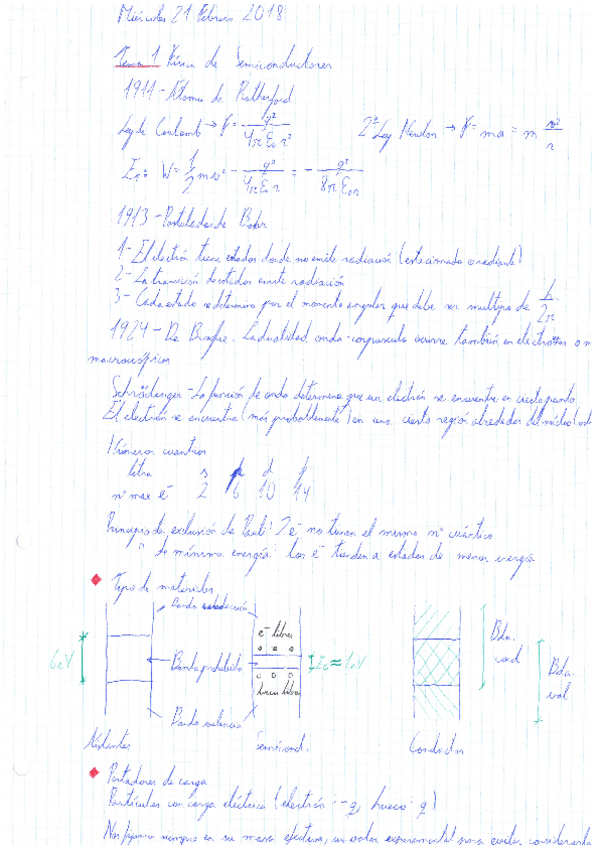 Miércoles 21 Febrero 2018
Tema 1 Física de Semiconductores
1911 - Átomo de Rutherford
Ley de Coulomb → F = q²/4πε₀r²   2ª Ley Newton → F = ma = m v²/r
W = 1/2 mv² - q²/4πε₀r = - q²/8πε₀r
1913 - Postulados de Bohr
1 - El electrón tiene estados donde no emite radiación (estacionario o radiante)
2 - La transición de estados emite radiación
3 - Cada estado se determina por el momento angular que debe ser multiplo de h/2π
1924 - De Broglie. La dualidad onda-corpusculo ocurre también en electrones o
macroscópicos
Schrödinger - La función de onda determina que un electrón se encuentre en cierto punto
El electrón se encuentra (más probablemente) en una cierta región alrededor del núcleo
Números cuanticos
letra s p d f
nº max e⁻ 2 6 10 14
Principio de exclusión de Pauli: 2 e⁻ no tienen el mismo nº cuántico
" de mínima energía: los e⁻ tienden a estados de menor energía
Tipos de materiales
Banda conducción
e⁻ libres
Bda. cond
6eV
Banda prohibida
≈ 1eV
Bda. val
huecos libres
Banda valencia
Aislantes Semicond. Conductor
Portadores de carga
Partículas con carga eléctrica (electrón: -q, hueco: q)
siempre en su masa efectiva, un valor experimental para evitar considerando